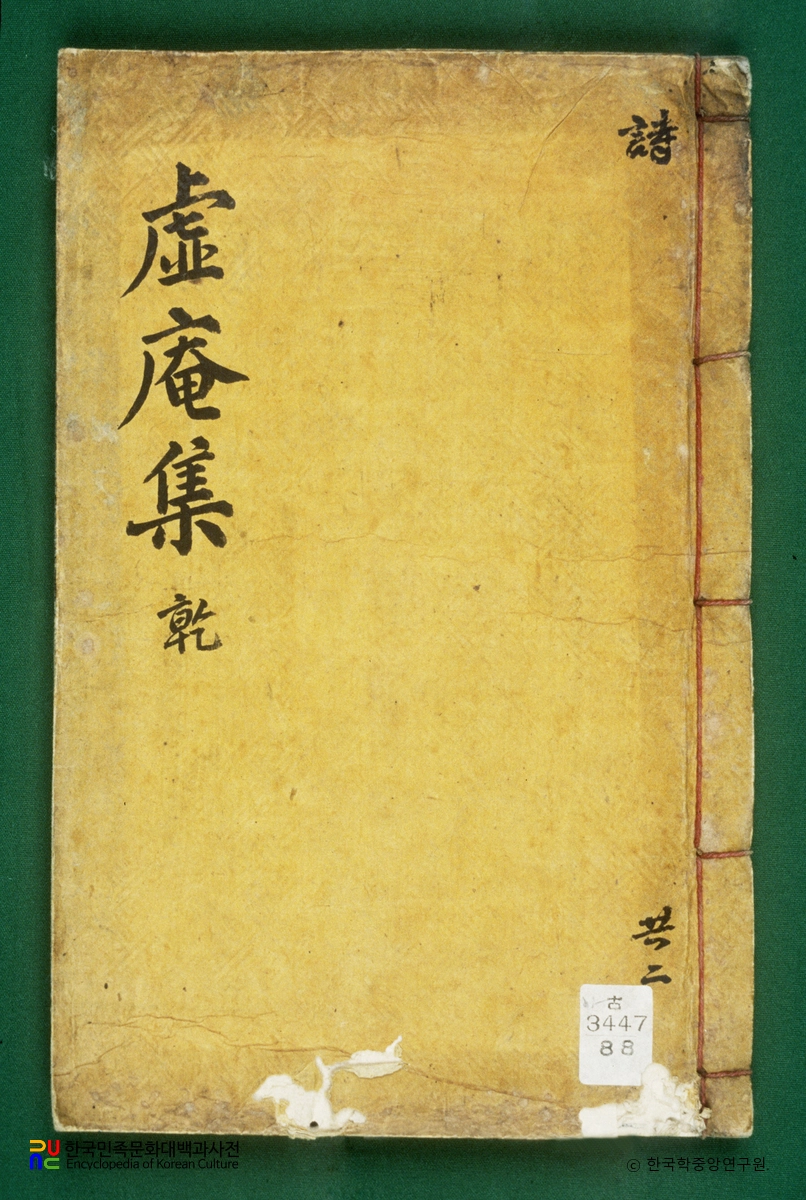 詩
虛庵集 乾
共二
古
3447
88
한국민족문화대백과사전
Encyclopedia of Korean Culture
ⓒ 한국학중앙연구원.